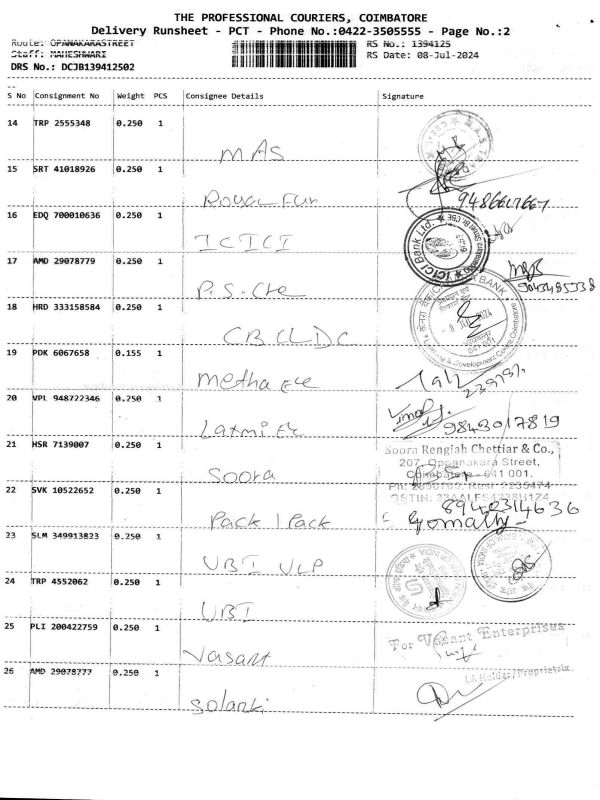 THE PROFESSIONAL COURIERS, COIMBATORE
Delivery Runsheet - PCT - Phone No.:0422-3505555 - Page No.:2
Route: OPANAKARASTREET RS No.: 1394125
Staff: MAHESHWARI RS Date: 08-Jul-2024
DRS No.: DCJB139412502
S No Consignment No Weight PCS Consignee Details Signature
14 TRP 2555348 0.250 1
MAS
15 SRT 41018926 0.250 1
Royal Fur 9486617667
16 EDQ 700010636 0.250 1
ICICI
ICICI Bank Ltd.
17 AMD 29078779 0.250 1
P.S. Cte 9043485338
18 HRD 333158584 0.250 1
8 JUL 2024
641 001
CB CLDC
19 PDK 6067658 0.155 1
Metha Ele
20 VPL 948722346 0.250 1
Laxmi Ele 9843017819
21 HSR 7139007 0.250 1
Soora Rengiah Chettiar & Co.,
207, Oppanakara Street,
Coimbatore - 641 001.
Soora
22 SVK 10522652 0.250 1
8940314636
Pack 1 Pack Gomathy
23 SLM 349913823 0.250 1
UBI VLP
24 TRP 4552062 0.250 1
UBI
25 PLI 200422759 0.250 1
For Vasant Enterprises
Vasant
26 AMD 29078777 0.250 1
LA Holder/Proprietrix
Solanki